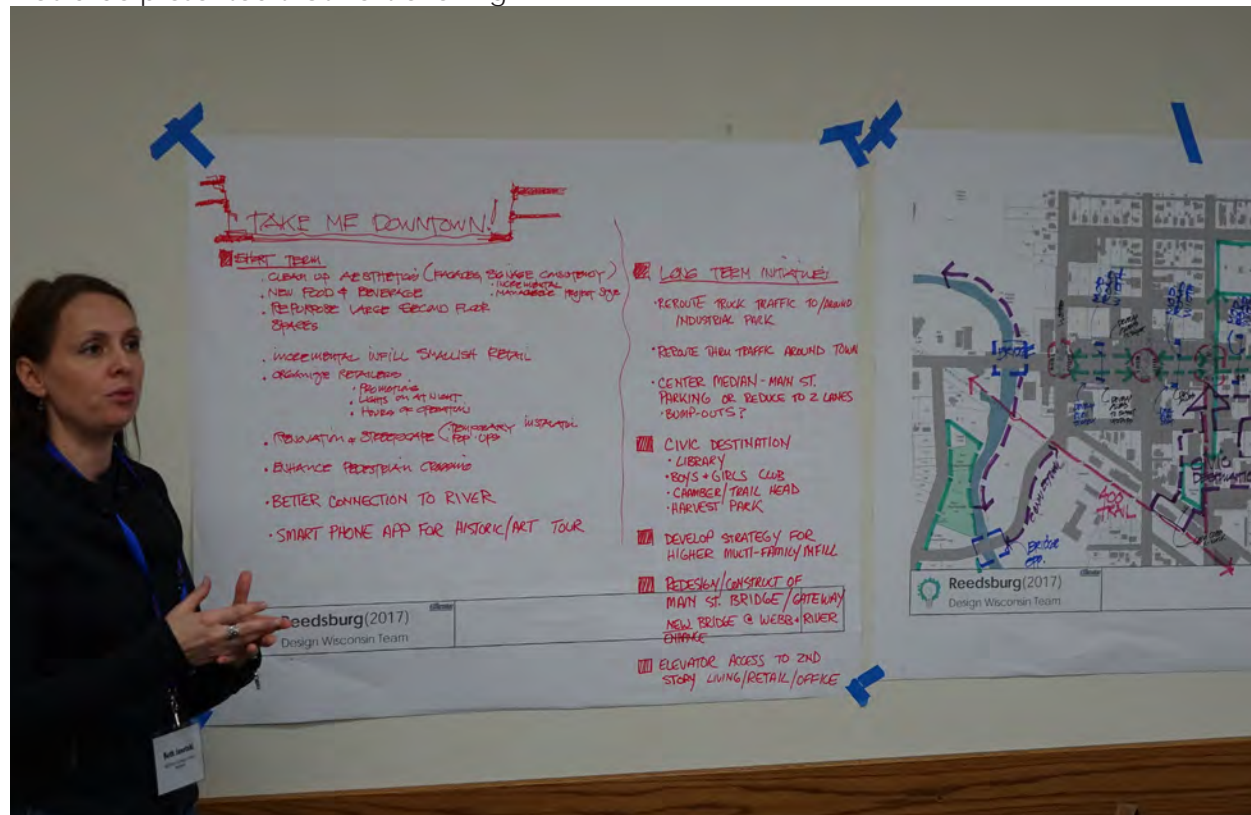 TAKE ME DOWNTOWN!
SHORT TERM
· CLEAN UP AESTHETICS (FACADES, SIGNAGE CONSISTENCY)
· INCREMENTAL
· MANAGEABLE PROJECT SIZE
· NEW FOOD & BEVERAGE
· REPURPOSE LARGE SECOND FLOOR
SPACES
· INCREMENTAL INFILL SMALLISH RETAIL
· ORGANIZE RETAILERS
· PROMOTIONS
· LIGHTS ON AT NIGHT
· HOURS OF OPERATION
· RENOVATION & STREETSCAPE (TEMPORARY INSTALLATION
POP-UPS
· ENHANCE PEDESTRIAN CROSSING
· BETTER CONNECTION TO RIVER
· SMART PHONE APP FOR HISTORIC/ART TOUR
LONG TERM INITIATIVES
· REROUTE TRUCK TRAFFIC TO/AROUND
INDUSTRIAL PARK
· REROUTE THRU TRAFFIC AROUND TOWN
· CENTER MEDIAN - MAIN ST.
PARKING OR REDUCE TO 2 LANES
· BUMP-OUTS?
CIVIC DESTINATION
· LIBRARY
· BOYS + GIRLS CLUB
· CHAMBER/TRAIL HEAD
· HARVEST PARK
DEVELOP STRATEGY FOR
HIGHER MULTI-FAMILY/INFILL
REDESIGN/CONSTRUCT OF
MAIN ST. BRIDGE/GATEWAY
NEW BRIDGE @ WEBB + RIVER
ENHANCE
ELEVATOR ACCESS TO 2ND
STORY LIVING/RETAIL/OFFICE
Reedsburg (2017)
Design Wisconsin Team
BRIDGE
400
TRAIL
CIVIC
DESTINATION
BRIDGE
OPP.
Reedsburg (2017)
Design Wisconsin Team